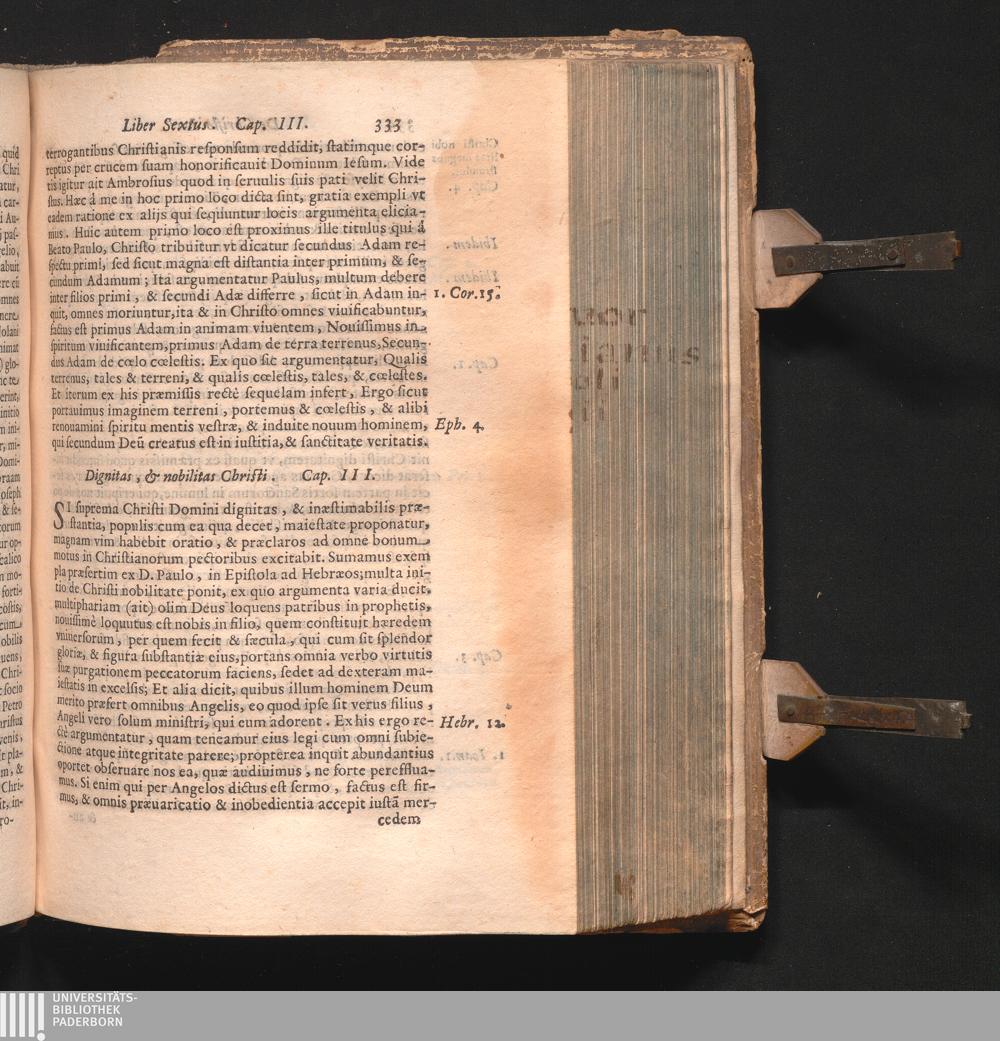 Liber Sextus. Cap. III. 333
terrogantibus Christianis responsum reddidit, statimque cor-
reptus per crucem suam honorificauit Dominum Iesum. Vide
tis igitur ait Ambrosius quod in seruulis suis pati velit Chri-
stus. Hæc á me in hoc primo loco dicta sint, gratia exempli vt
eadem ratione ex alijs qui sequuntur locis argumenta elicia-
mus. Huic autem primo loco est proximus ille titulus qui á
Beato Paulo, Christo tribuitur vt dicatur secundus Adam re-
spectu primi, sed sicut magna est distantia inter primum, & se-
cundum Adamum; Ita argumentatur Paulus, multum debere
inter filios primi, & secundi Adæ differre, sicut in Adam in-
1. Cor. 15.
quit, omnes moriuntur, ita & in Christo omnes viuificabuntur,
factus est primus Adam in animam viuentem, Nouissimus in
spiritum viuificantem, primus Adam de terra terrenus, Secun-
dus Adam de cœlo cœlestis. Ex quo sic argumentatur, Qualis
terrenus, tales & terreni, & qualis cœlestis, tales, & cœlestes.
Et iterum ex his præmissis rectè sequelam infert, Ergo sicut
portauimus imaginem terreni, portemus & cœlestis, & alibi
renouamini spiritu mentis vestræ, & induite nouum hominem,
Eph. 4.
qui secundum Deū creatus est in iustitia, & sanctitate veritatis.
Dignitas, & nobilitas Christi. Cap. III.
SI suprema Christi Domini dignitas, & inæstimabilis præ-
stantia, populis cum ea qua decet, maiestate proponatur,
magnam vim habebit oratio, & præclaros ad omne bonum
motus in Christianorum pectoribus excitabit. Sumamus exem
pla præsertim ex D. Paulo, in Epistola ad Hebræos; multa ini-
tio de Christi nobilitate ponit, ex quo argumenta varia ducit,
multiphariam (ait) olim Deus loquens patribus in prophetis,
nouissimè loquutus est nobis in filio, quem constituit hæredem
vniuersorum, per quem fecit & sæcula, qui cum sit splendor
gloriæ, & figura substantiæ eius, portans omnia verbo virtutis
suæ purgationem peccatorum faciens, sedet ad dexteram ma-
iestatis in excelsis; Et alia dicit, quibus illum hominem Deum
merito præfert omnibus Angelis, eo quod ipse sit verus filius,
Angeli vero solum ministri, qui eum adorent. Ex his ergo re-
Hebr. 12.
ctè argumentatur, quam teneamur eius legi cum omni subie-
ctione atque integritate parere; propterea inquit abundantius
oportet obseruare nos ea, quæ audiuimus, ne forte pereffluа-
mus. Si enim qui per Angelos dictus est sermo, factus est fir-
mus, & omnis præuaricatio & inobedientia accepit iustā mer-
cedem
UNIVERSITÄTS-
BIBLIOTHEK
PADERBORN